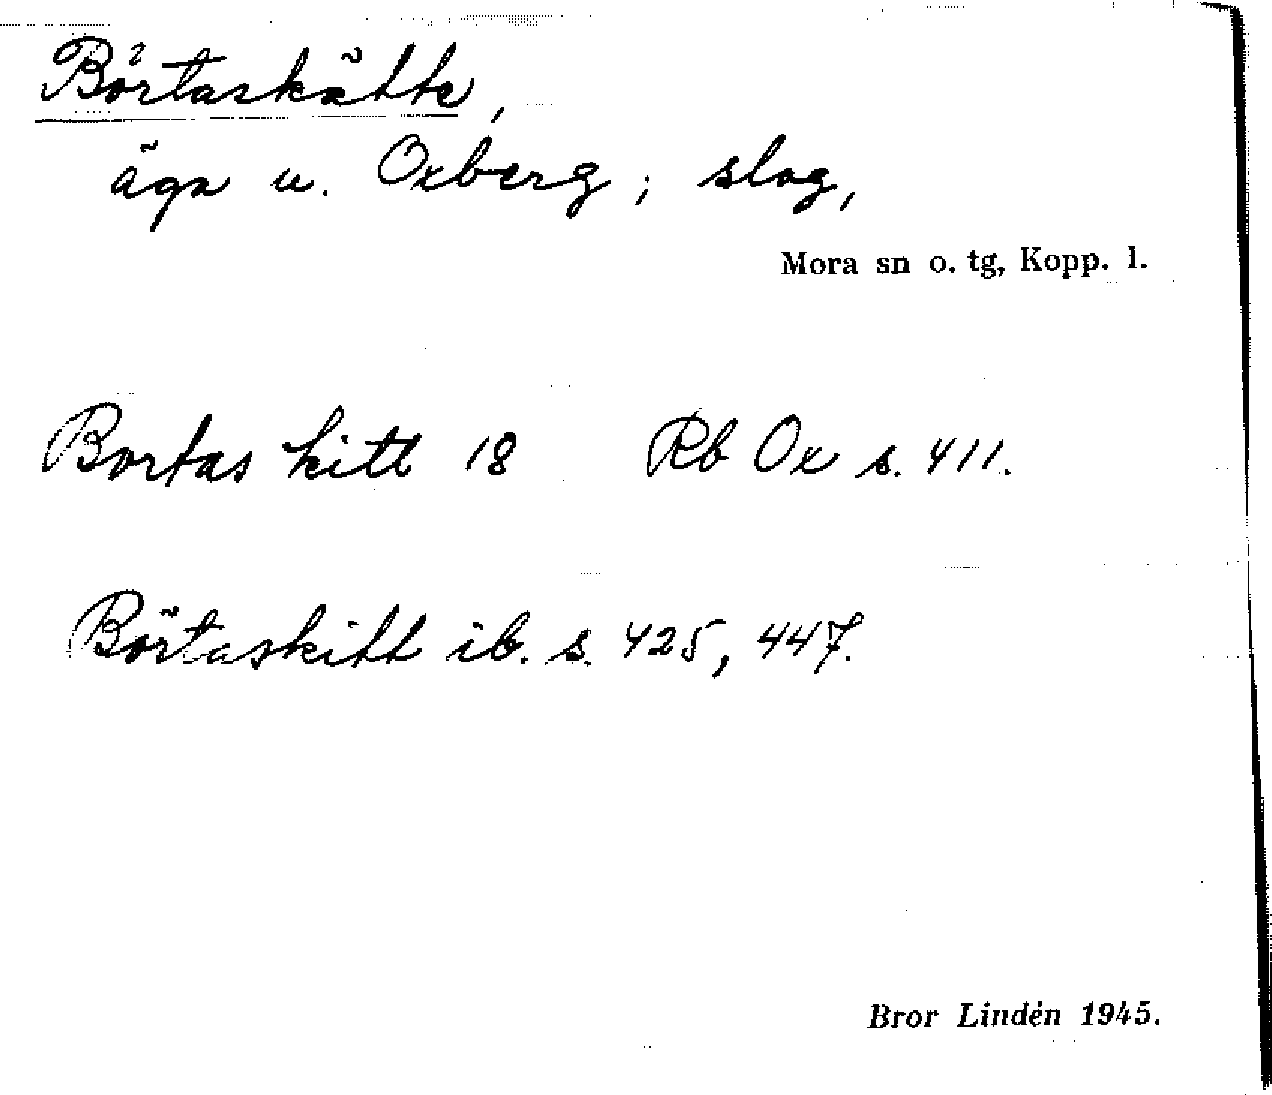 Börtaskätte,
äga u. Oxberg; slog,
Mora sn o. tg, Kopp. l.
Bortas kitt 18 Rb Ox s. 411.
Börtaskitt ib. s. 425, 447.
Bror Lindén 1945.